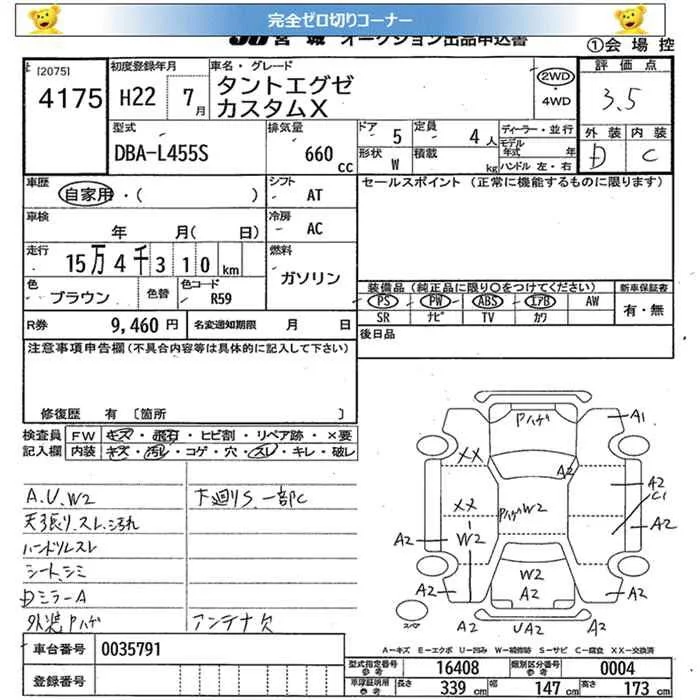 完全ゼロ切りコーナー
JU 宮城 オークション出品申込書
①会場控
[2075]
4175
初度登録年月
H22 7月
車名・グレード
タントエグゼ
カスタムX
2WD
・4WD
評価点
3.5
外装 内装
D C
型式
DBA-L455S
排気量
660 cc
ドア 5
定員 4人
形状 W
積載 kg
ディーラー・並行
モデル年式 年
ハンドル 左・右
車歴
自家用・( )
シフト
AT
車検
年 月( 日)
冷房
AC
走行
15万4千310km
燃料
ガソリン
色
ブラウン
色替
色コード
R59
R券 9,460円
名変通知期限 月 日
セールスポイント (正常に機能するものに限ります)
装備品(純正品に限り○をつけてください)
新車保証書
PS PW ABS エアB AW
SR ナビ TV カワ
有・無
後日品
注意事項申告欄(不具合内容等は具体的に記入して下さい)
修復歴 有〔箇所 〕
検査員 FW キズ・飛石・ヒビ割・リペア跡・×要
記入欄 内装 キズ・汚レ・コゲ・穴・スレ・キレ・破レ
A.U.W2
下廻りS.一部C
天張り.スレ.汚れ
ハンドルスレ
シート.シミ
DミラーA
外装Pハゲ
アンテナ欠
Pハゲ
A1
XX
A2
A2
C1
XX
PハゲW2
A2
A2
W2
W2
A2
A2
UA2
A2
スペア
A-キズ E-エクボ U-凹み W-補修跡 S-サビ C-腐食 XX-交換済
車台番号 0035791
登録番号
型式指定番号 参考 16408
類別区分番号 参考 0004
車庫証明用 参考 長さ 339 cm 幅 147 cm 高さ 173 cm